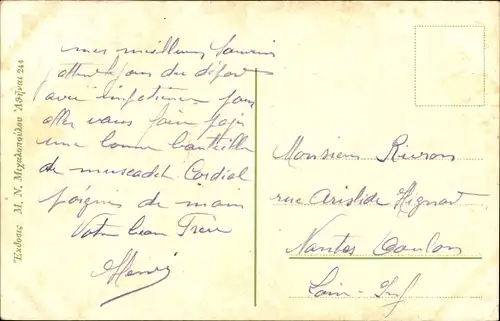 Ἔκδοσις Μ. Ν. Μιχαλοπούλου Ἀθῆναι 244
mes meilleurs Souvenirs
attend le jour du départ
avec impatience pour
aller vous faire payer
une bonne bouteille
de muscadet. Cordial
poignée de main
Votre beau Frère
Henri
Monsieur Rivron
rue Aristide Hignard
Nantes Doulon
Loire-Inf